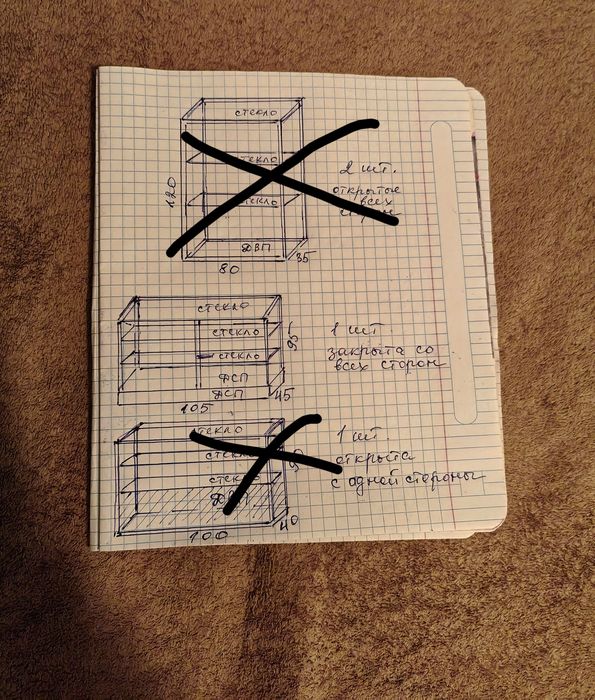 стекло
стекло
стекло
ДВП
120
80
35
2 шт.
открытые
всех
сторон
стекло
стекло
стекло
ДСП
ДСП
105
45
95
1 шт.
закрыта со
всех сторон
стекло
стекло
стекло
100
40
1 шт.
открыта
с одной стороны